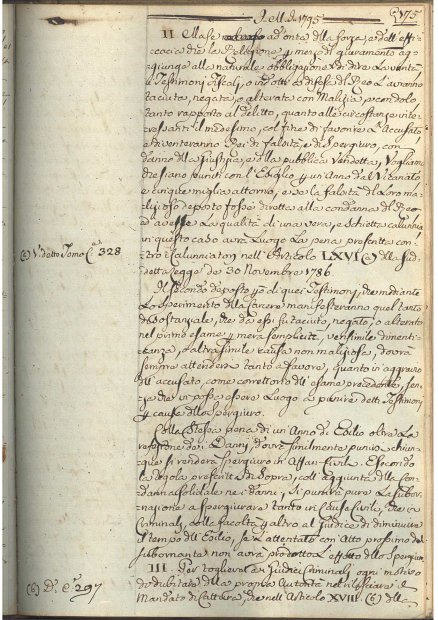 Del dì 1795
175
II. Ma se ad onta della forza, e dell'effi-
cacia che la Religione per mezzo del giuramento ag-
giunge alla naturale obbligazione di dire la verità,
i Testimonj Fiscali, o indotti a difesa del Reo l'avranno
taciuta, negata, o alterata con Malizia, e con dolo
tanto rapporto al delitto, quanto alle circostanze inte-
ressanti il medesimo, col fine di favorire l'Accusato
e diventeranno Rei di falsità, e di Spergiuro, con
danno della Giustizia, e della pubblica Vendetta, Vogliamo
che siano puniti con l'Esilio per un Anno dal Vicariato
e cinque miglia attorno, e se la falsità di Loro ma-
lizioso deposto fosse diretta alla condanna del Reo
e avesse la qualità di una vera, e schietta calunnia
in questo caso avrà Luogo la pena prescritta con-
tro i Calunniatori nell'Articolo LXVI (a) della Sud-
detta Legge de 30 Novembre 1786.
(a) V. detto Tomo Cᵉ 328
Il Secondo deposto poi di quei Testimonj, che mediante
lo Sperimento della Carcere manifesteranno quel tanto
di sostanziale, che da essi fu taciuto, negato, o alterato
nel primo esame per mera semplicità, verisimile dimenti-
canza, o altra simile causa non maliziosa, dovrà
sempre attendersi tanto a favore, quanto in aggravio
dell'accusato, come correttorio dell'esame precedente, sen-
za che in possa essere Luogo a punire detti Testimonj
per causa dello Spergiuro.
Colla Stessa pena di un Anno di Esilio oltre la
refezione dei Danni, dovrà similmente punirsi chiun-
que si renderà Spergiuro in Affari Civili. E secondo
la Regola prescritta di Sopra, coll'aggiunta della Con-
danna solidale nei danni, si punirà pure la Subor-
nazione a Spergiurare tanto in Cause Civili, che in
Criminali, colla facoltà per altro al Giudice di diminuire
il tempo dell'Esilio, se l'attentato con Atto prossimo del
Subornante non avrà prodotto l'effetto dello Spergiuro.
III. Per togliere ai Giudici Criminali ogni motivo
di dubitare della propria Autorità nel rilasciare il
Mandato di Cattura, che nell'Articolo XVIII. (b) della
(b) Dᵒ Cᵉ 297